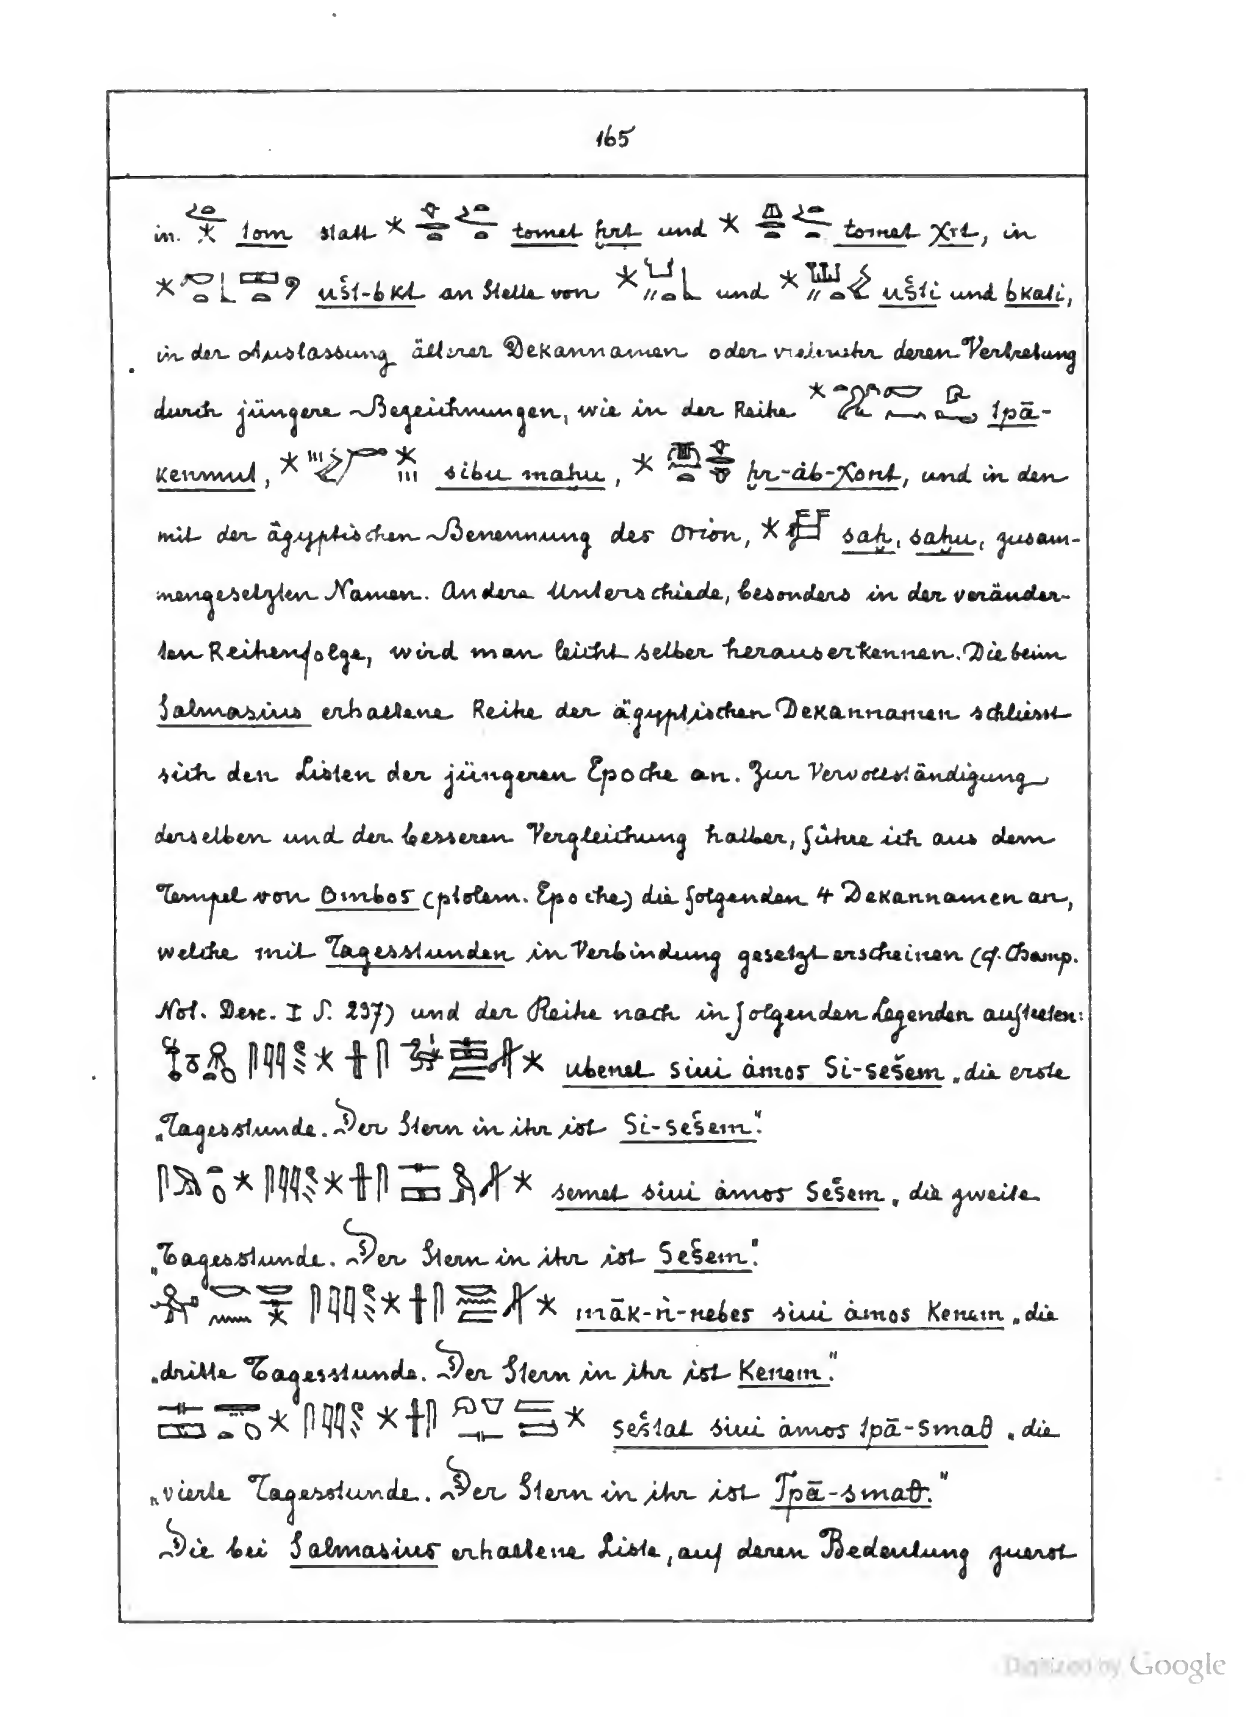 165
in tom statt tomet ḥrt und tomet χrt, in
ušt-bkt an Stelle von und ušti und bkati,
in der Auslassung älterer Dekannamen oder vielmehr deren Vertretung
durch jüngere Bezeichnungen, wie in der Reihe tpā-
kenmut, sibu mahu, ḥr-àb-χont, und in den
mit der ägyptischen Benennung des Orion, saḥ, saḥu, zusam-
mengesetzten Namen. Andere Unterschiede, besonders in der veränder-
ten Reihenfolge, wird man leicht selber herauserkennen. Die beim
Salmasius erhaltene Reihe der ägyptischen Dekannamen schliesst
sich den Listen der jüngeren Epoche an. Zur Vervollständigung
derselben und der besseren Vergleichung halber, führe ich aus dem
Tempel von Ombos (ptolem. Epoche) die folgenden 4 Dekannamen an,
welche mit Tagesstunden in Verbindung gesetzt erscheinen (cf. Champ.
Not. Desc. I S. 237) und der Reihe nach in folgenden Legenden auftreten:
ubenet siui àmos Si-sešem „die erste
„Tagesstunde. Der Stern in ihr ist Si-sešem."
semet siui àmos Sešem „die zweite
„Tagesstunde. Der Stern in ihr ist Sešem."
māk-ṅ-nebes siui àmos Kenem „die
„dritte Tagesstunde. Der Stern in ihr ist Kenem."
seštat siui àmos tpā-smaθ „die
„vierte Tagesstunde. Der Stern in ihr ist Tpā-smaθ."
Die bei Salmasius erhaltene Liste, auf deren Bedeutung zuerst
Digitized by Google